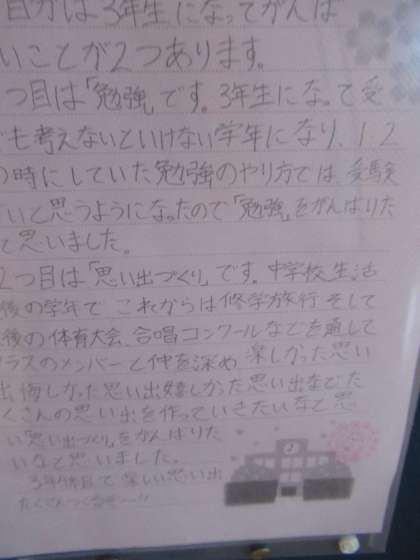 自分は3年生になってがんば
いことが2つあります。
つ目は「勉強」です。3年生になって受
も考えないといけない学年になり、1、2
の時にしていた勉強のやり方では、受験
いと思うようになったので「勉強」をがんばりた
て思いました。
2つ目は「思い出づくり」です。中学校生活
後の学年で これからは修学旅行 そして
後の体育大会、合唱コンクールなどを通して
ラスのメンバーと仲を深め 楽しかった思い
出 悔しかった思い出嬉しかった思い出などた
くさんの思い出を作っていきたいなと思
い「思い出づくり」をがんばりた
いなと思いました。
3年 楽しい思い出
たくさんつくるぞー!!